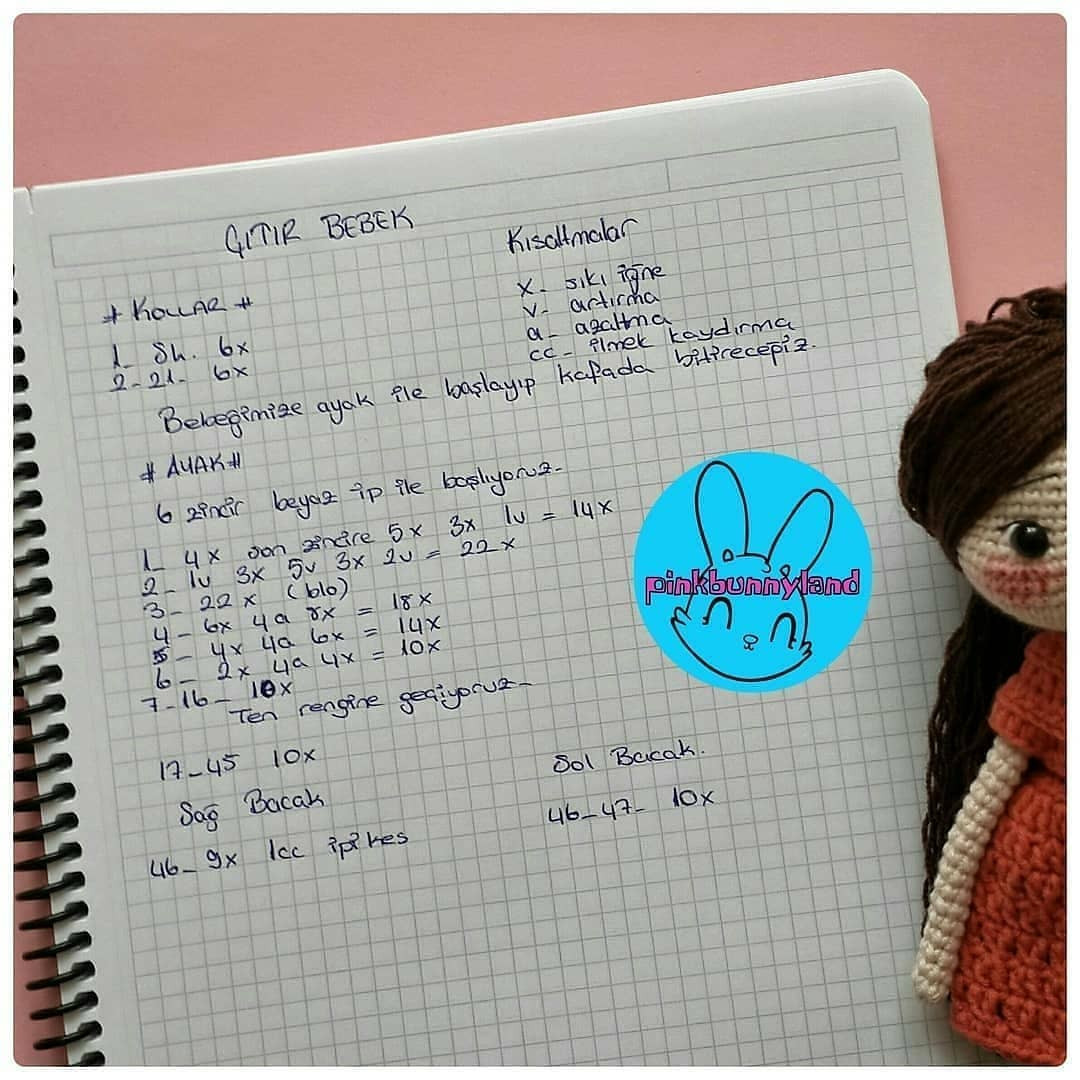 ÇITIR BEBEK
Kısaltmalar
# KOLLAR #
x - sıkı iğne
v - artırma
a - azaltma
cc - ilmek kaydırma
1- Sh. 6x
2-21- 6x
Bebeğimize ayak ile başlayıp kafada bitireceğiz.
# AYAK #
6 zincir beyaz ip ile başlıyoruz-
1- 4x son zincire 5x 3x 1v = 14x
2- 1v 3x 5v 3x 2v = 22x
3- 22x (blo)
4- 6x 4a 8x = 18x
5- 4x 4a 6x = 14x
6- 2x 4a 4x = 10x
7-16- 10x
Ten rengine geçiyoruz-
17-45 10x
Sağ Bacak
46- 9x 1cc ipi kes
Sol Bacak.
46-47- 10x
pinkbunnyland